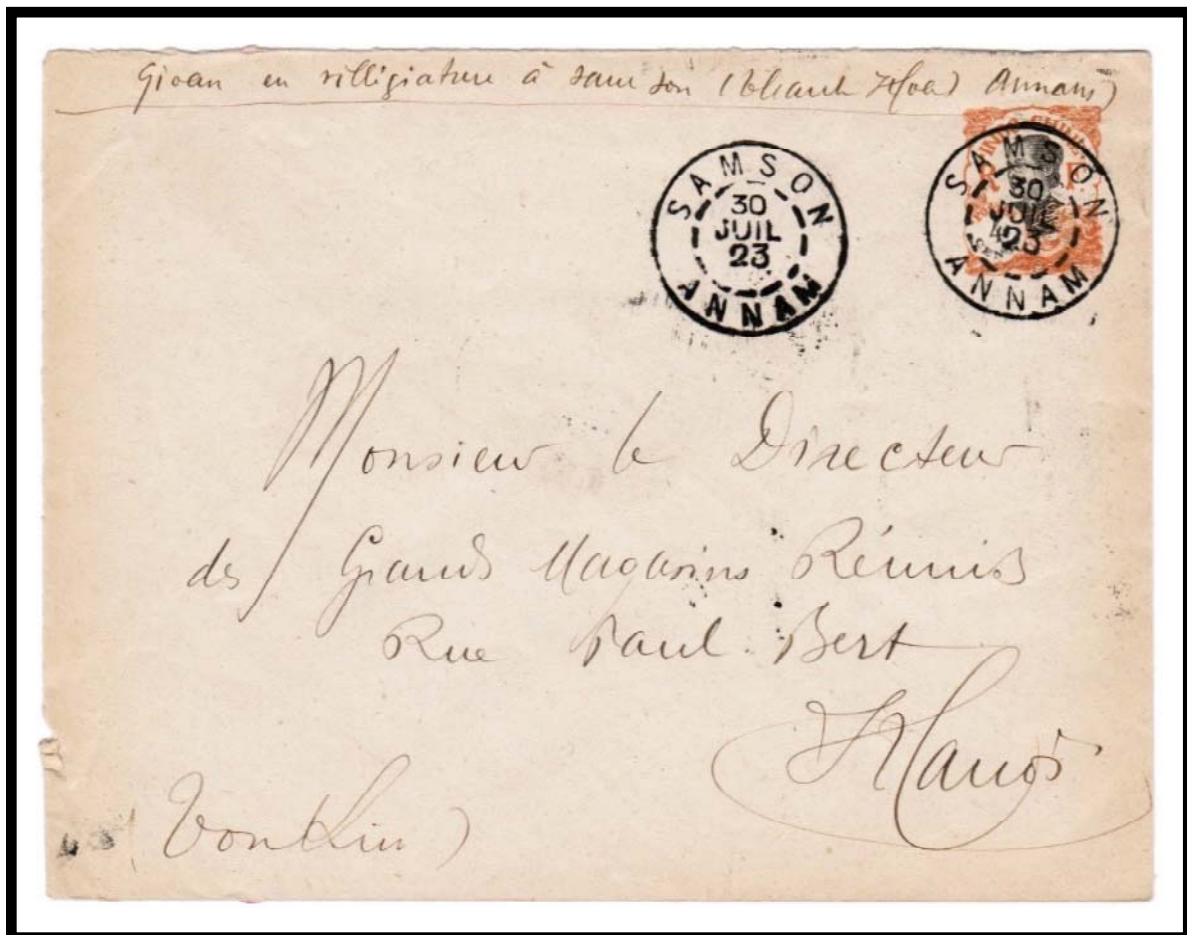 Gioan en villégiature à Sam Son (Thanh Hoa) Annam
SAMSON
30
JUIL
23
ANNAM
INDO-CHINE
R F
SAMSON
30
JUIL
23
ANNAM
Monsieur le Directeur
des Grands Magasins Réunis
Rue Paul Bert
Hanoï
(Tonkin)